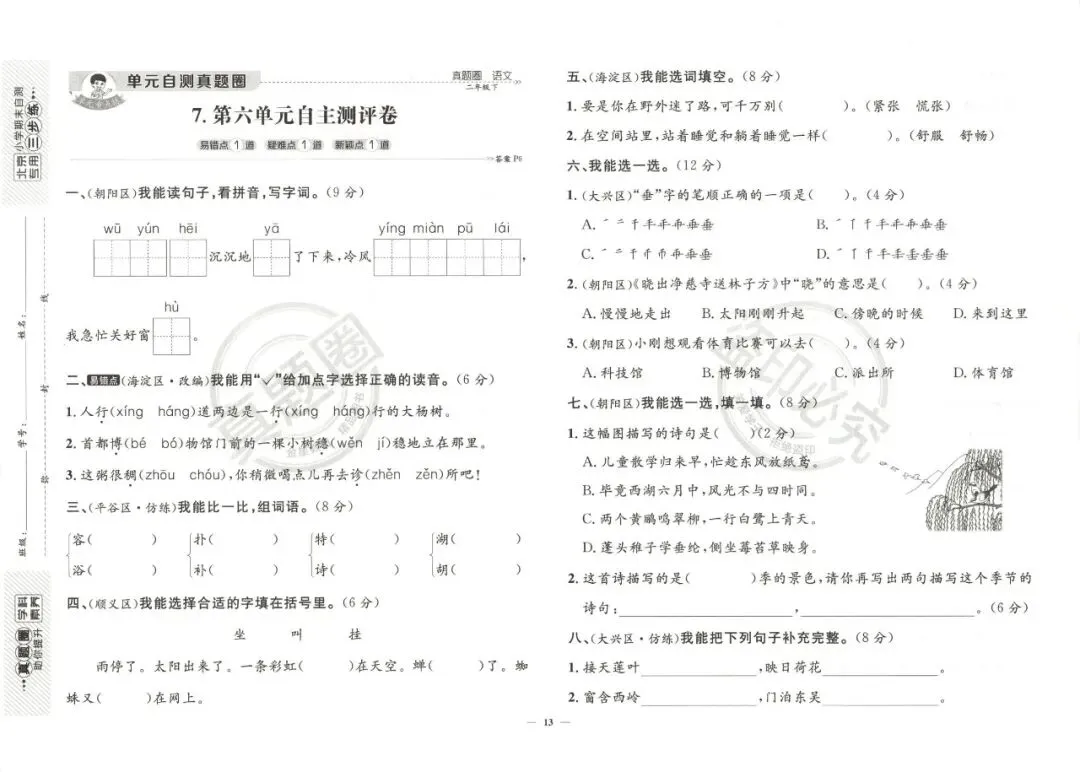 北京
专用
小学期末自测
三步练
姓名:
学号:
班级:
线
封
弥
真题圈
助你提升
学科
素养
单元自测真题圈
真题圈 语文
二年级下
7. 第六单元自主测评卷
易错点1道 疑难点1道 新颖点1道
答案P6
一、(朝阳区)我能读句子,看拼音,写字词。(9分)
wū yún hēi yā yíng miàn pū lái
沉沉地 了下来,冷风 ,
hù
我急忙关好窗
二、易错点(海淀区·改编)我能用“✓”给加点字选择正确的读音。(6分)
1. 人行(xíng háng)道两边是一行(xíng háng)行的大杨树。
2. 首都博(bé bó)物馆门前的一棵小树稳(wěn jí)稳地立在那里。
3. 这粥很稠(zhōu chóu),你稍微喝点儿再去诊(zhěn zěn)所吧!
三、(平谷区·仿练)我能比一比,组词语。(8分)
容( ) 扑( ) 特( ) 湖( )
浴( ) 补( ) 诗( ) 胡( )
四、(顺义区)我能选择合适的字填在括号里。(6分)
坐 叫 挂
雨停了。太阳出来了。一条彩虹( )在天空。蝉( )了。蜘
蛛又( )在网上。
五、(海淀区)我能选词填空。(8分)
1. 要是你在野外迷了路,可千万别( )。(紧张 慌张)
2. 在空间站里,站着睡觉和躺着睡觉一样( )。(舒服 舒畅)
六、我能选一选。(12分)
1. (大兴区)“垂”字的笔顺正确的一项是( )。(4分)
A. B.
C. D.
2. (朝阳区)《晓出净慈寺送林子方》中“晓”的意思是( )。(4分)
A. 慢慢地走出 B. 太阳刚升起 C. 傍晚的时候 D. 来到这里
3. (朝阳区)小刚想观看体育比赛可以去( )。(4分)
A. 科技馆 B. 博物馆 C. 派出所 D. 体育馆
七、(朝阳区)我能选一选,填一填。(8分)
1. 这幅图描写的诗句是( )(2分)
A. 儿童散学归来早,忙趁东风放纸鸢。
B. 毕竟西湖六月中,风光不与四时同。
C. 两个黄鹂鸣翠柳,一行白鹭上青天。
D. 蓬头稚子学垂纶,侧坐莓苔草映身。
2. 这首诗描写的是( )季的景色,请你再写出两句描写这个季节的
诗句:____________,____________。(6分)
八、(大兴区·仿练)我能把下列句子补充完整。(8分)
1. 接天莲叶____________,映日荷花____________。
2. 窗含西岭____________,门泊东吴____________。
— 13 —
真题圈
盗印必究